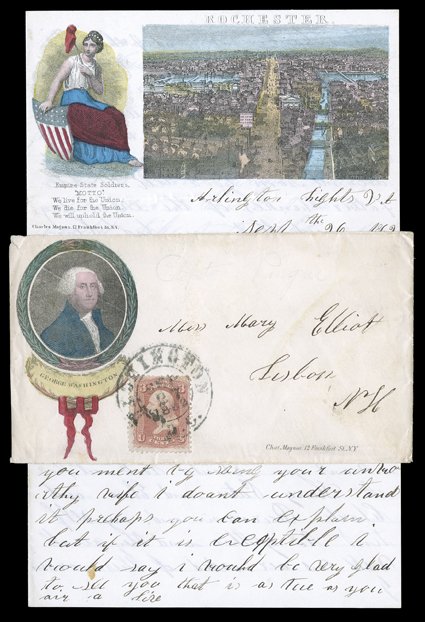 ROCHESTER
Empire State Soldiers.
"MOTTO"
We live for the Union.
We die for the Union.
We will uphold the Union.
Charles Magnus, 12 Frankfort St, N.Y.
Arlington hights VA
Sept the 26 1862
GEORGE WASHINGTON
WASHINGTON D.C.
Miss Mary Elliot
Lisbon
NH
Chas. Magnus, 12 Frankfort St, NY
you ment by your
wife i doant understand
it perhaps you can explain.
but if it is i
would say i would be very glad
to see you that is as tue as you
air a live